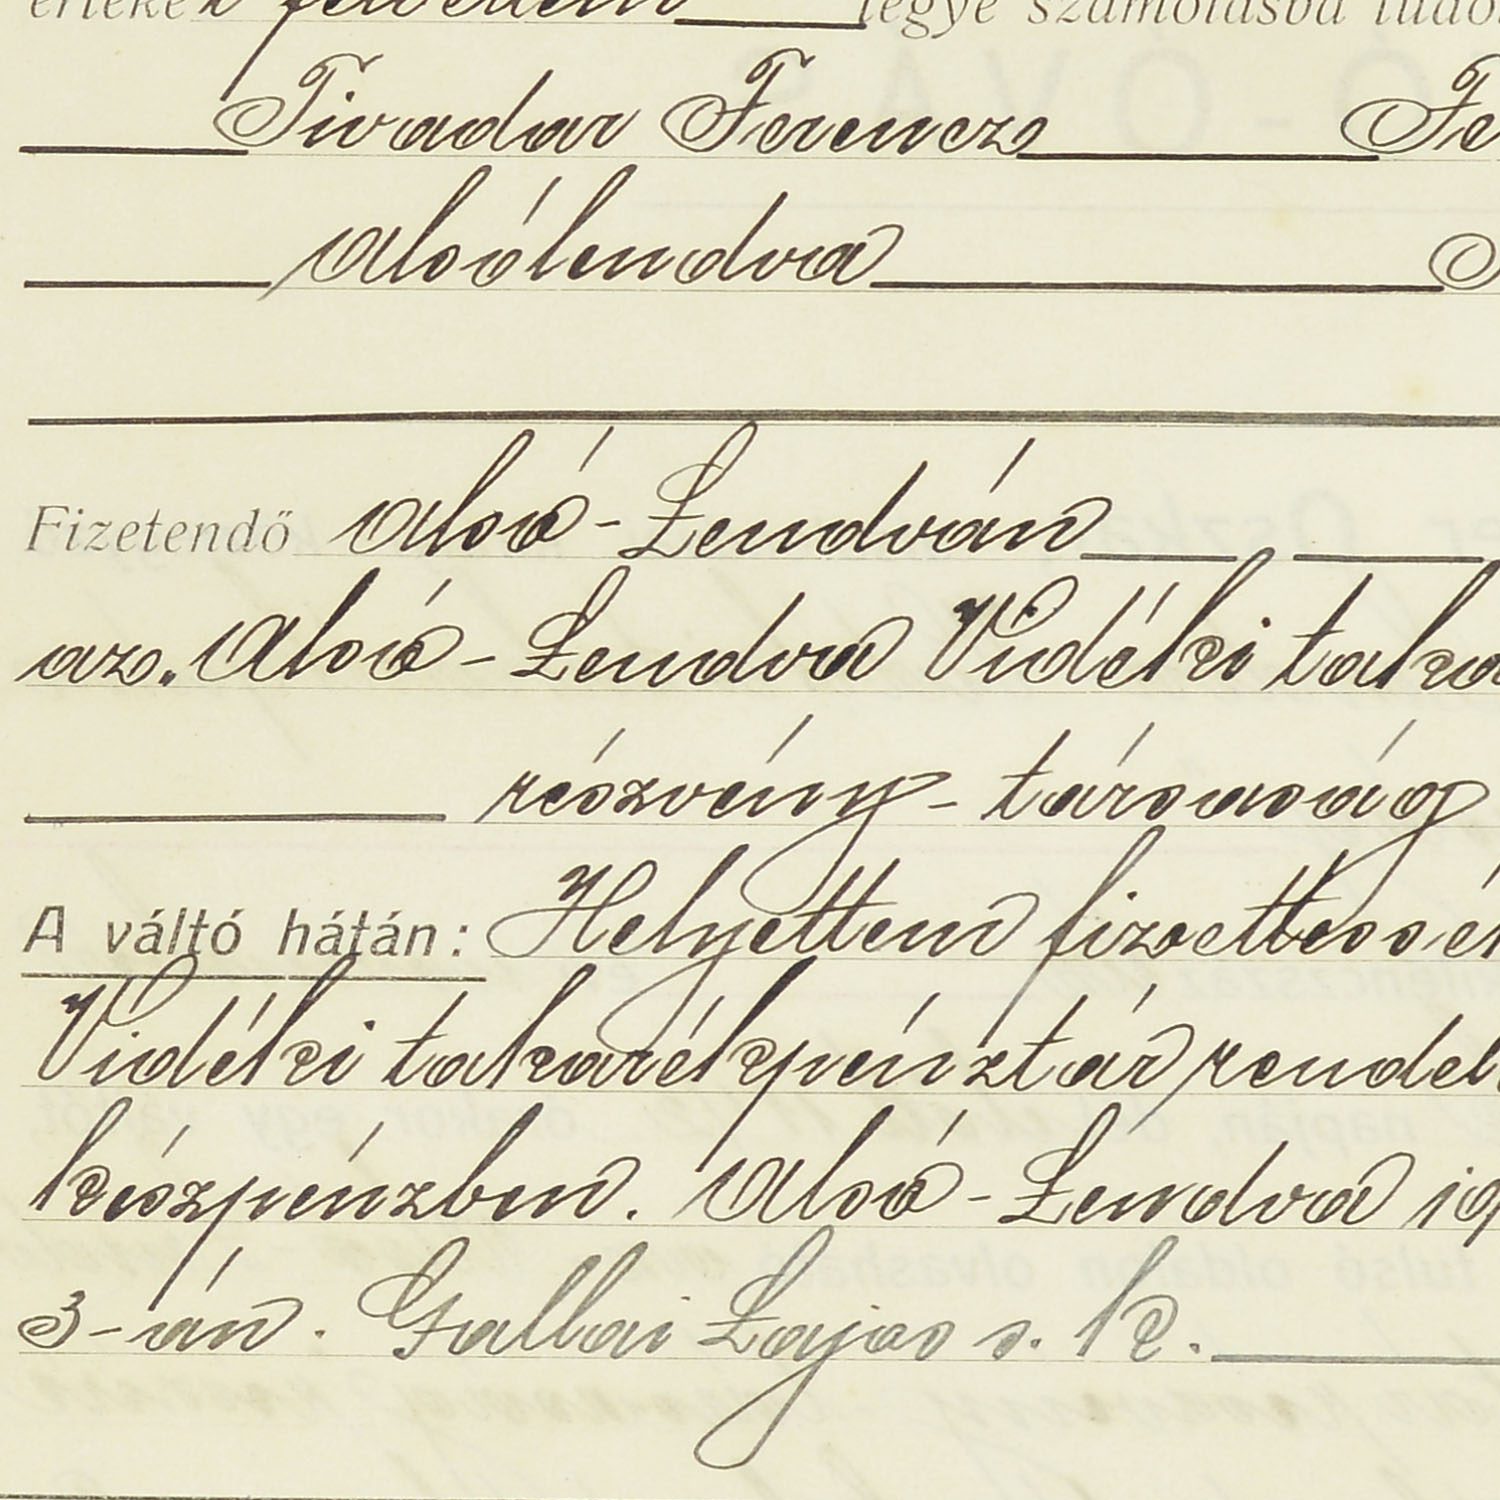 értékét felvettem legye számolásba tudó
Tivadar Ferencz Fe
Alsólendva
Fizetendő Alsó-Lendván
az. Alsó-Lendva Vidéki taka
részvény-társaság
A váltó hátán: Helyettem fizettessék
Vidéki takarékpénztár rendel
készpénzben. Alsó-Lendva 19
3-án. Gallai Lajos s. k.